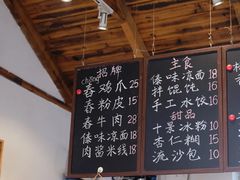 chōng 招牌
舂鸡爪 25
舂粉皮 15
舂牛肉 28
傣味凉面 18
肉酱米线 18
主食
傣味凉面 18
拌馄饨 18
手工水饺 16
甜品
十景冰粉 10
杏仁糊 15
流沙包 15